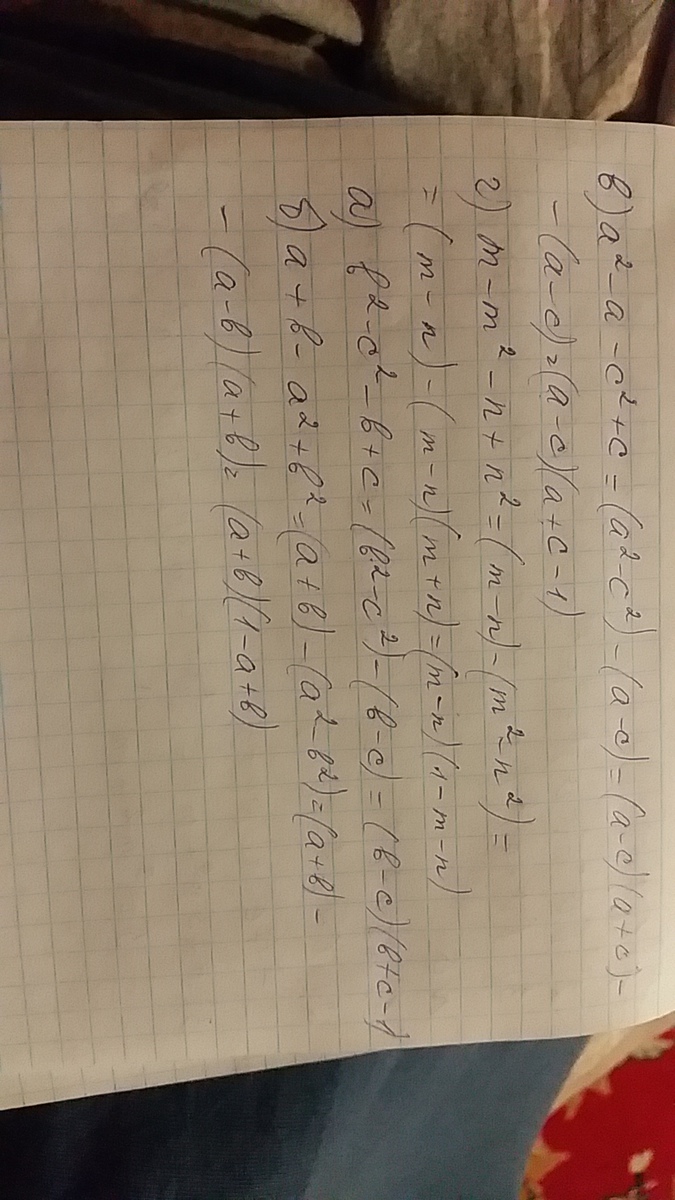 в) a² - a - c² + c = (a² - c²) - (a - c) = (a - c)(a + c) -
- (a - c) = (a - c)(a + c - 1)
г) m - m² - n + n² = (m - n) - (m² - n²) =
= (m - n) - (m - n)(m + n) = (m - n)(1 - m - n)
а) b² - c² - b + c = (b² - c²) - (b - c) = (b - c)(b + c - 1)
б) a + b - a² + b² = (a + b) - (a² - b²) = (a + b) -
- (a - b)(a + b) = (a + b)(1 - a + b)